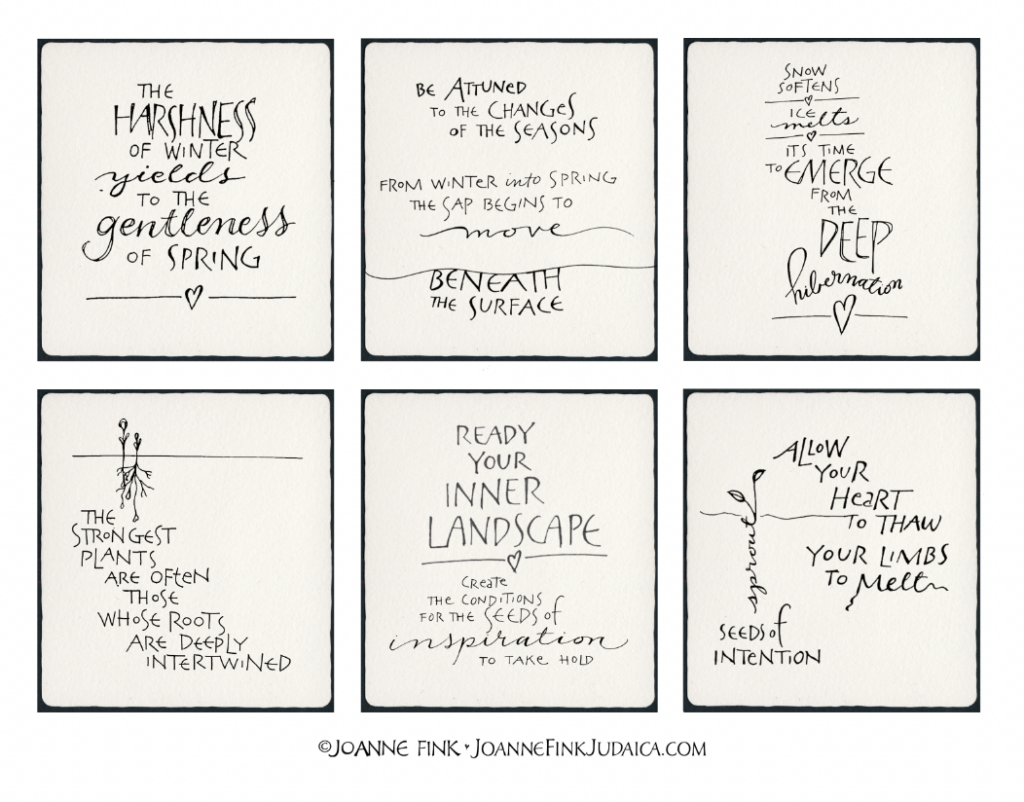 THE
HARSHNESS
OF WINTER
yields
TO THE
gentleness
OF SPRING
BE ATTUNED
TO THE CHANGES
OF THE SEASONS
FROM WINTER into SPRING
THE SAP BEGINS TO
move
BENEATH
THE SURFACE
SNOW
SOFTENS
ICE
melts
ITS TIME
TO EMERGE
FROM
THE
DEEP
hibernation
THE
STRONGEST
PLANTS
ARE OFTEN
THOSE
WHOSE ROOTS
ARE DEEPLY
INTERTWINED
READY
YOUR
INNER
LANDSCAPE
CREATE
THE CONDITIONS
FOR THE SEEDS of
inspiration
TO TAKE HOLD
ALLOW
YOUR
HEART
TO THAW
YOUR LIMBS
TO Melt
sprout
SEEDS of
INTENTION
©JOANNE FINK ♥ JOANNEFINKJUDAICA.COM